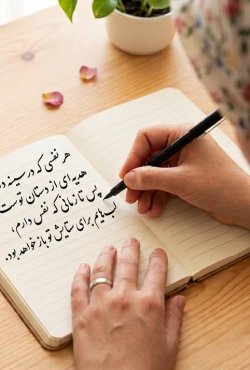 هر نفسی که در سینه
هدیه‌ای از دستان توست
پس تا زمانی که نفس دارم،
لبهایم برای ستایش تو باز خواهد بود.